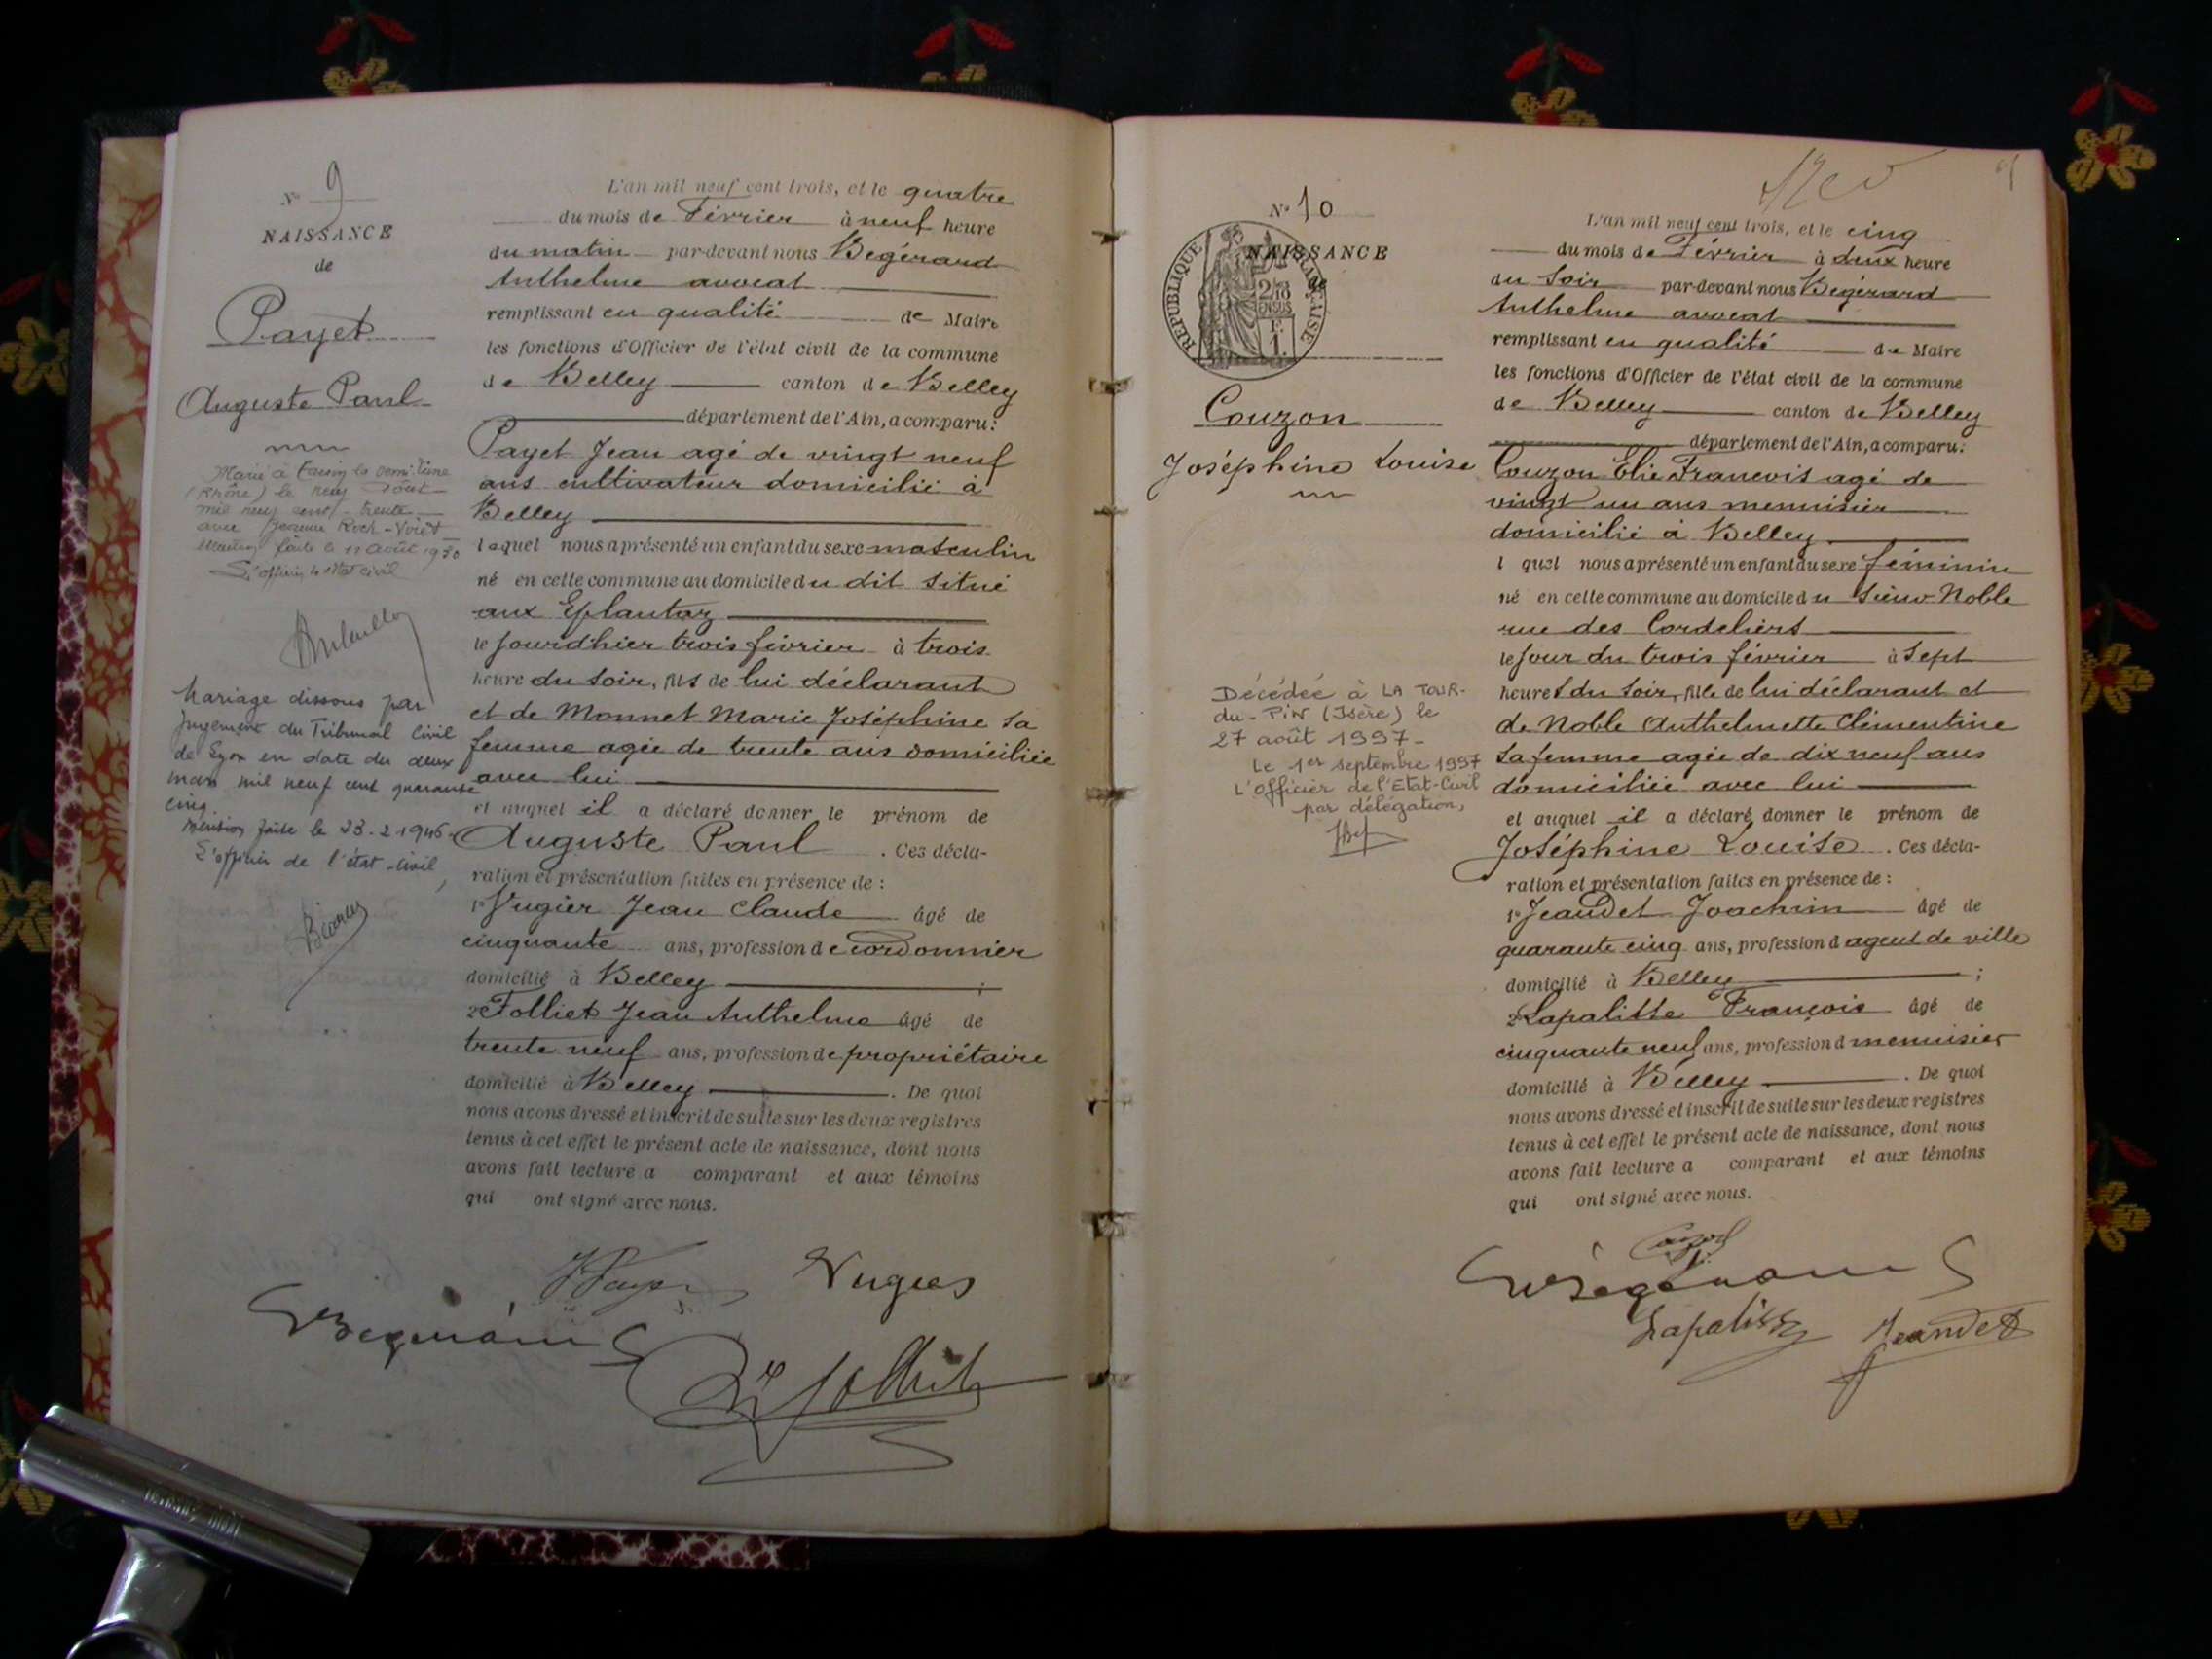 N° 9
NAISSANCE
de
Payet
Auguste Paul
Marié à Tassin la demi-lune
(Rhône) le neuf Août
mil neuf cent trente
avec Jeanne Roch-
Mention faite le 11 août 1930
L'officier de l'état civil
Mariage dissous par
Jugement du Tribunal Civil
de Lyon en date du deux
mars mil neuf cent quarante
cinq.
Mention faite le 23-2-1946
L'officier de l'état-civil,
L'an mil neuf cent trois, et le quatre
du mois de Février à neuf heure
du matin par-devant nous Bégérard
Anthelme avocat
remplissant en qualité de Maire
les fonctions d'Officier de l'état civil de la commune
de Belley canton de Belley
département de l'Ain, a comparu:
Payet Jean agé de vingt neuf
ans cultivateur domicilié à
Belley
lequel nous a présenté un enfant du sexe masculin
né en cette commune au domicile du dit situé
aux Eplantaz
le jourd'hier trois février à trois
heure du soir, fils de lui déclarant
et de Monnet Marie Joséphine sa
femme agée de trente ans domiciliée
avec lui
et auquel il a déclaré donner le prénom de
Auguste Paul . Ces décla-
ration et présentation faites en présence de :
1° Vugier Jean Claude âgé de
cinquante ans, profession de cordonnier
domicilié à Belley ;
2° Folliet Jean Anthelme âgé de
trente neuf ans, profession de propriétaire
domicilié à Belley . De quoi
nous avons dressé et inscrit de suite sur les deux registres
tenus à cet effet le présent acte de naissance, dont nous
avons fait lecture a comparant et aux témoins
qui ont signé avec nous.
Payet Vugier
Bégérard
Folliet
N° 10
NAISSANCE
de
REPUBLIQUE FRANÇAISE
2/10
EN SUS
1F.
Couzon
Joséphine Louise
Décédée à LA TOUR-
du-PIN (Isère) le
27 août 1997-
Le 1er septembre 1997
L'Officier de l'Etat-Civil
par délégation,
L'an mil neuf cent trois, et le cinq
du mois de Février à deux heure
du Soir par-devant nous Bégérard
Anthelme avocat
remplissant en qualité de Maire
les fonctions d'Officier de l'état civil de la commune
de Belley canton de Belley
département de l'Ain, a comparu:
Couzon Elie Francois agé de
vingt un ans menuisier
domicilié à Belley
l quel nous a présenté un enfant du sexe féminin
né en cette commune au domicile du Sieur Noble
rue des Cordeliers
le jour du trois février à Sept
heures du Soir, fille de lui déclarant et
de Noble Anthelmette Clémentine
Sa femme agée de dix neuf ans
domiciliée avec lui
et auquel il a déclaré donner le prénom de
Joséphine Louise . Ces décla-
ration et présentation faites en présence de :
1° Jeandet Joachim âgé de
quarante cinq ans, profession d agent de ville
domicilié à Belley ;
2° Lapalisse François âgé de
cinquante neuf ans, profession d menuisier
domicilié à Belley . De quoi
nous avons dressé et inscrit de suite sur les deux registres
tenus à cet effet le présent acte de naissance, dont nous
avons fait lecture a comparant et aux témoins
qui ont signé avec nous.
Couzon
Bégérard
Lapalisse Jeandet